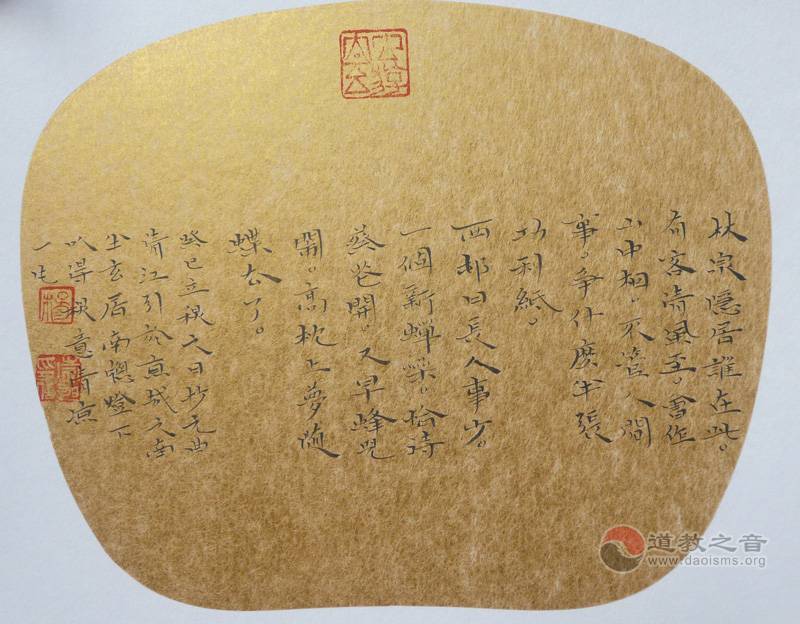 林泉隱居誰在此。
有客清風至。會作
山中相。不管人間
事。爭什麼半張
功利紙。
西邨日長人事少。
一個新蟬噪。恰待
葵花開。又早蜂兒
鬧。高枕上夢隨
蝶去了。
癸巳立秋之日抄元曲
清江引於京城之南
坐玄居南窗燈下
以得秋意清凉
一
楊
道教之音
www.daoisms.org